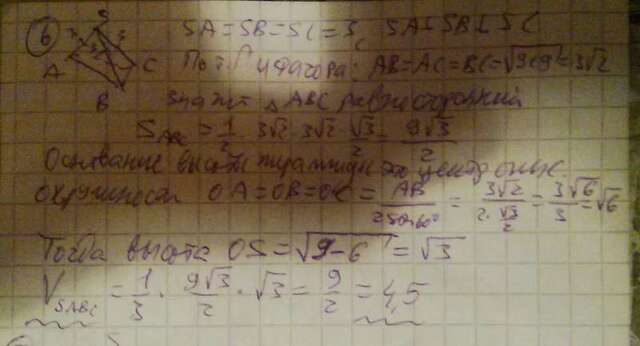 6 S A B C 3 3 3 SA=SB=SC=3, SA⊥SB⊥SC
По т. Пифагора: AB=AC=BC=√9+9=3√2
значит △ABC равносторонний
S_ABC = 1/2 · 3√2 · 3√2 · √3/2 = 9√3/2
Основание высоты пирамиды это центр опис.
окружности OA=OB=OC = AB/2sin60° = 3√2/(2·√3/2) = 3√6/3 = √6
Тогда высота OS=√9-6 = √3
V_SABC = 1/3 · 9√3/2 · √3 = 9/2 = 4,5